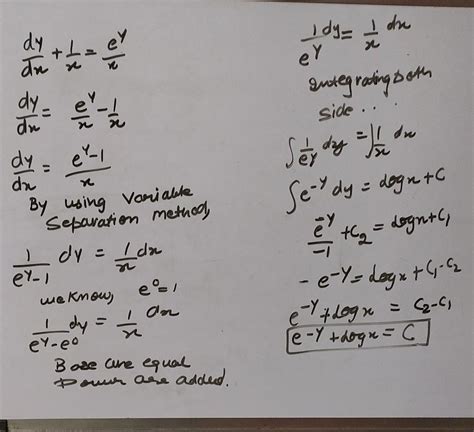 dy/dx + 1/x = e^y/x
dy/dx = e^y/x - 1/x
dy/dx = (e^y-1)/x
By using Variable
Separation method,
1/(e^y-1) dy = 1/x dx
we know, e^0=1
1/(e^y-e^0) dy = 1/x dx
Base are equal
Power are added.
1/e^y dy = 1/x dx
Integrating both
side . . .
∫ 1/e^y dy = ∫ 1/x dx
∫ e^-y dy = log x + C
e^-y/-1 + C₂ = log x + C₁
- e^-y = log x + C₁-C₂
e^-y + log x = C₂-C₁
e^-y + log x = C